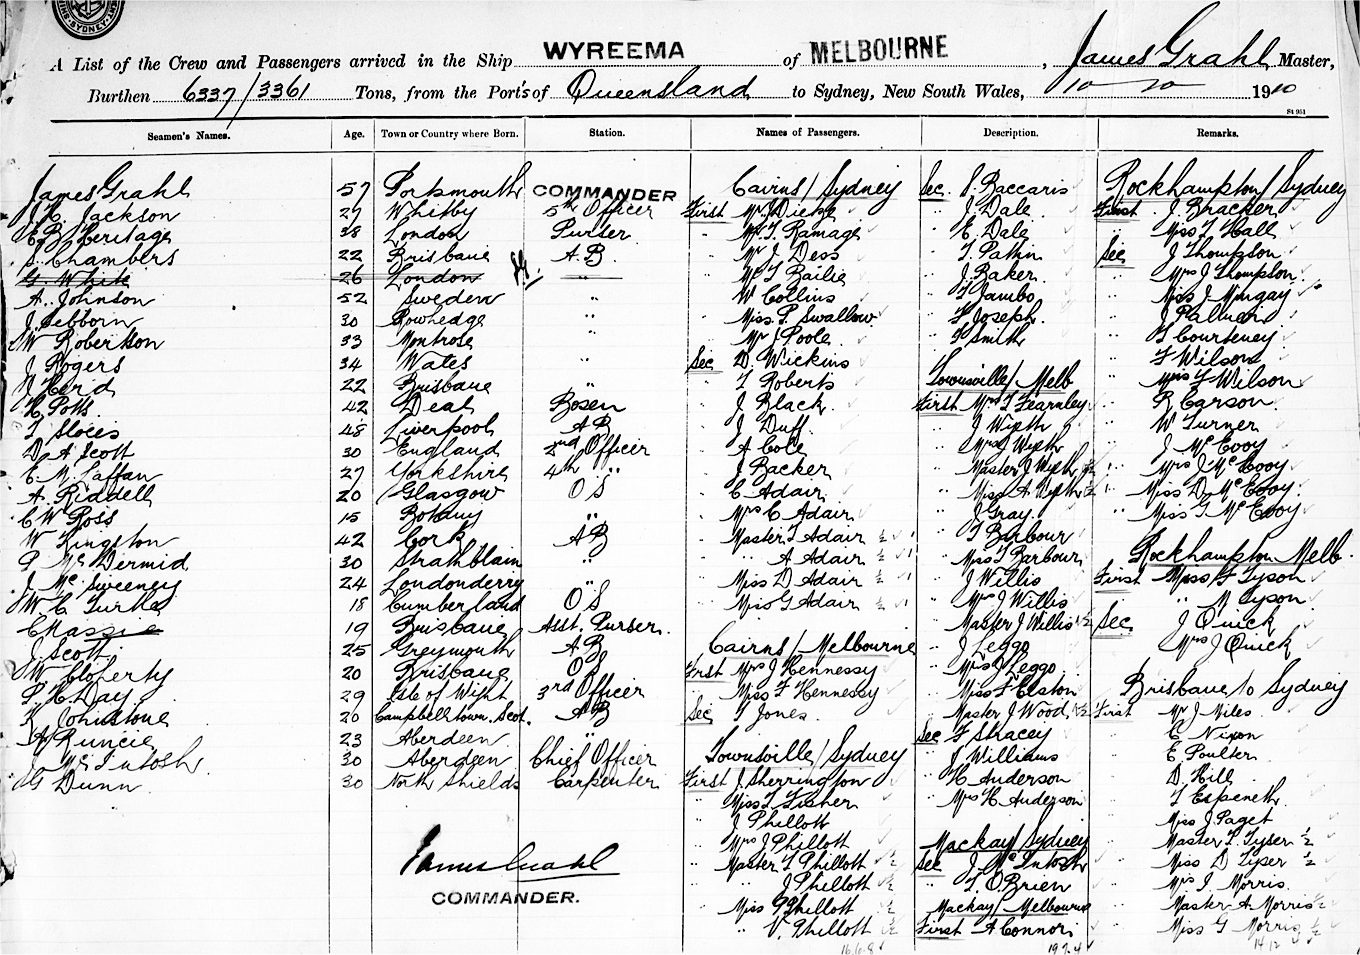 SYDNEY
A List of the Crew and Passengers arrived in the Ship WYREEMA of MELBOURNE, James Grahl, Master,
Burthen 6337/3361 Tons, from the Port's of Queensland to Sydney, New South Wales, 10 10 1910
St 951
Seamen's Names. Age. Town or Country where Born. Station. Names of Passengers. Description. Remarks.
James Grahl 57 Portsmouth COMMANDER
Jackson 27 Whitby 5th Officer
Heritage 38 London Purser
S. Chambers 22 Brisbane A.B.
G. White 26 London "
A. Johnson 52 Sweden "
30 Rowhedge "
W Robertson 33 Montrose
J Rogers 34 Wales "
22 Brisbane "
H. Potts 42 Deal Bosen
48 Liverpool A B
D. A. Scott 30 England 2nd Officer
E. M. Laffan 27 Yorkshire 4th "
A. Riddell 20 Glasgow O S
C W Ross 15 Botany "
W Kingston 42 Cork A B
P McDermid 30 Strathblain "
J McSweeney 24 Londonderry "
W. C. 18 Cumberland O S
C Massie 19 Brisbane Asst. Purser.
J. Scott 25 Greymouth A B
W. Cloherty 20 Brisbane O S
P. H. Day 29 Isle of Wight 3rd Officer
R Johnstone 20 Campbelltown. Scot. A B
A Runcie 23 Aberdeen "
J. McIntosh 30 Aberdeen Chief Officer
G Dunn 30 North Shields Carpenter
James Grahl
COMMANDER.
Cairns / Sydney
First Mr.
" Mr. T Ramage
" Mr J Dess
" Mr T Bailie
" W Collins
" Miss P. Swallow
" Mr J Poole
Sec D. Wickins
" T Roberts
" J Black
" J Duff
" A Cole
" J Backer
" C Adair
" Mrs C Adair
" Master T Adair ½ 1
" " A Adair ½ 1
" Miss D Adair ½ 1
" Miss G Adair ½ 1
Cairns / Melbourne
First Mrs J Hennessy
" Miss F Hennessy
Sec T Jones
Townsville / Sydney
First J Sherrington
" Miss T Fisher
" J Phillott
" Mrs J Phillott
" Master T Phillott ½
" " J Phillott ½
" Miss P Phillott ½
" " V. Phillott ½
16.6.8
Sec. Baccaris
" J. Dale
" E. Dale
" T.
" J. Baker
" T Jambo
" F Joseph
" F Smith
Townsville / Melb
First Mrs T Fearnley
" J Wipth
" Mrs J Wipth
" Master J Wipth ½
" Miss A Wipth ½
" J Gray
" T Barbour
" Miss T Barbour
" J Willis
" Mrs J Willis
" Master J Willis ½
" J Leggo
" Mrs J Leggo
" Miss F Elston
" Master J Wood ½
Sec F Stracey
" J Williams
" H Anderson
" Mrs H Anderson
Mackay / Sydney
Sec J. McIntosh
" T. O'Brien
Mackay / Melbourne
First A Connor
19.7.4
Rockhampton / Sydney
First J. Bracker
" Miss T Hall
Sec J Thompson
" Mrs J Thompson
" Miss J Mingay
" J
" T Courteney
" F Wilson
" Mrs F Wilson
" R Carson
" W Turner
" J McEvoy
" Mrs J McEvoy
" Miss D. McEvoy
" Miss G McEvoy
Rockhampton Melb.
First Miss F Tyson
" " M Tyson
Sec J Quick
" Mrs J Quick
Brisbane to Sydney
First Mr J Miles
" E Nixon
" E Poulter
" D. Hill
" T Espeneth
" Miss J Paget
" Master T. Tyser ½
" Miss D Tyser ½
" Mrs J. Morris
" Master A Morris ½
" Miss G Morris ½
14 12 4